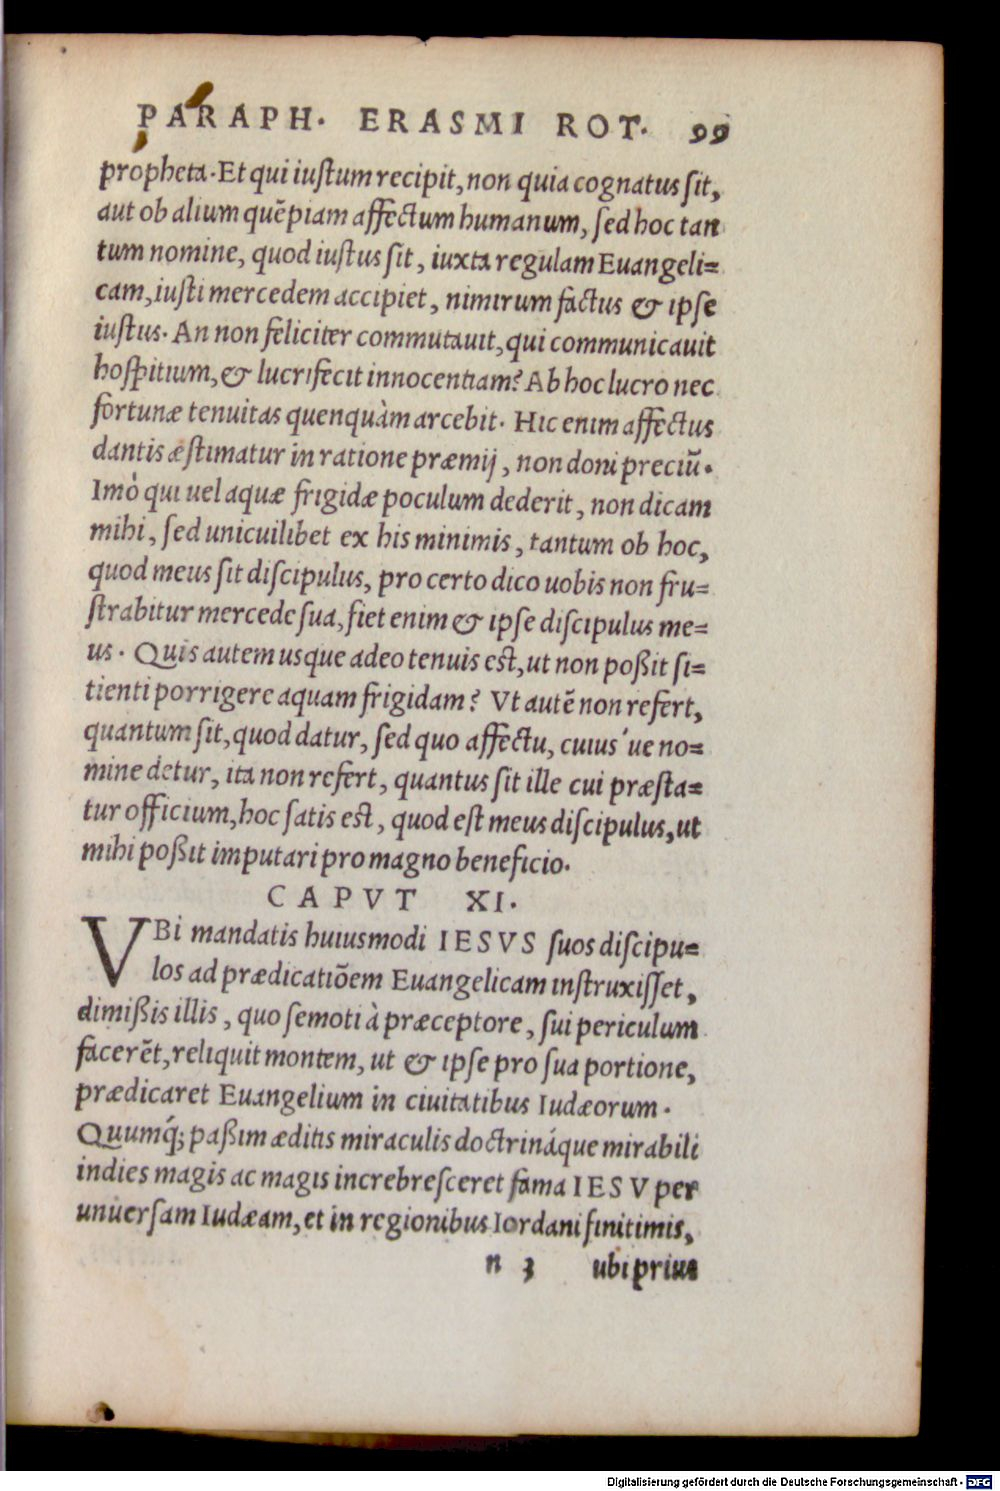 PARAPH. ERASMI ROT. 99
propheta. Et qui iustum recipit, non quia cognatus sit,
aut ob alium quẽpiam affectum humanum, sed hoc tan
tum nomine, quod iustus sit, iuxta regulam Euangeli=
cam, iusti mercedem accipiet, nimirum factus & ipse
iustus. An non feliciter commutauit, qui communicauit
hospitium, & lucrifecit innocentiam? Ab hoc lucro nec
fortunæ tenuitas quenquàm arcebit. Hic enim affectus
dantis æstimatur in ratione præmij, non doni preciũ.
Imò qui uel aquæ frigidæ poculum dederit, non dicam
mihi, sed unicuilibet ex his minimis, tantum ob hoc,
quod meus sit discipulus, pro certo dico uobis non fru=
strabitur mercede sua, fiet enim & ipse discipulus me=
us. Quis autem usque adeo tenuis est, ut non poßit si=
tienti porrigere aquam frigidam? Vt autẽ non refert,
quantum sit, quod datur, sed quo affectu, cuius'ue no=
mine detur, ita non refert, quantus sit ille cui præsta=
tur officium, hoc satis est, quod est meus discipulus, ut
mihi poßit imputari pro magno beneficio.
CAPVT XI.
VBi mandatis huiusmodi IESVS suos discipu=
los ad prædicatiõem Euangelicam instruxisset,
dimißis illis, quo semoti à præceptore, sui periculum
facerẽt, reliquit montem, ut & ipse pro sua portione,
prædicaret Euangelium in ciuitatibus Iudæorum.
Quumq́; paßim æditis miraculis doctrináque mirabili
indies magis ac magis increbresceret fama IESV per
uniuersam Iudæam, et in regionibus Iordani finitimis,
n 3 ubi prius
Digitalisierung gefördert durch die Deutsche Forschungsgemeinschaft - DFG